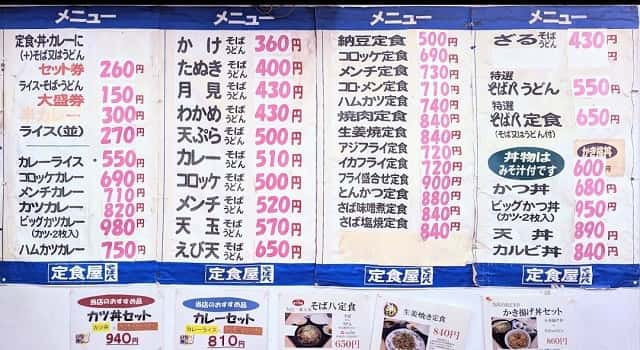 メニュー
定食・丼・カレーに
(+)そば又はうどん
セット券 260円
ライス・そば・うどん
大盛券 150円
半カレー 300円
ライス(並) 270円
カレーライス 550円
コロッケカレー 690円
メンチカレー 710円
カツカレー 820円
ビッグカツカレー 980円
(カツ・2枚入)
ハムカツカレー 750円
定食屋
メニュー
かけ そば うどん 360円
たぬき そば うどん 400円
月見 そば うどん 430円
わかめ そば うどん 430円
天ぷら そば うどん 500円
カレー そば うどん 510円
コロッケ そば うどん 500円
メンチ そば うどん 520円
天玉 そば うどん 570円
えび天 そば うどん 650円
定食屋
メニュー
納豆定食 500円
コロッケ定食 690円
メンチ定食 730円
コロ・メン定食 710円
ハムカツ定食 740円
焼肉定食 840円
生姜焼定食 840円
アジフライ定食 720円
イカフライ定食 720円
フライ盛合せ定食 900円
とんかつ定食 880円
さば味噌煮定食 840円
さば塩焼定食 840円
定食屋
メニュー
ざる そば うどん 430円
特選
そば八うどん 550円
特選
そば八定食 650円
(そば又はうどん付)
丼物は
みそ汁付です
かき揚丼
600円
かつ丼 680円
ビッグかつ丼 950円
(カツ・2枚入)
天丼 890円
カルビ丼 840円
定食屋
当店のおすすめ品
カツ丼セット
カツ丼
940円
当店のおすすめ品
カレーセット
カレーライス
810円
そば八定食
650円
生姜焼き定食
840円
かき揚げ丼セット
860円